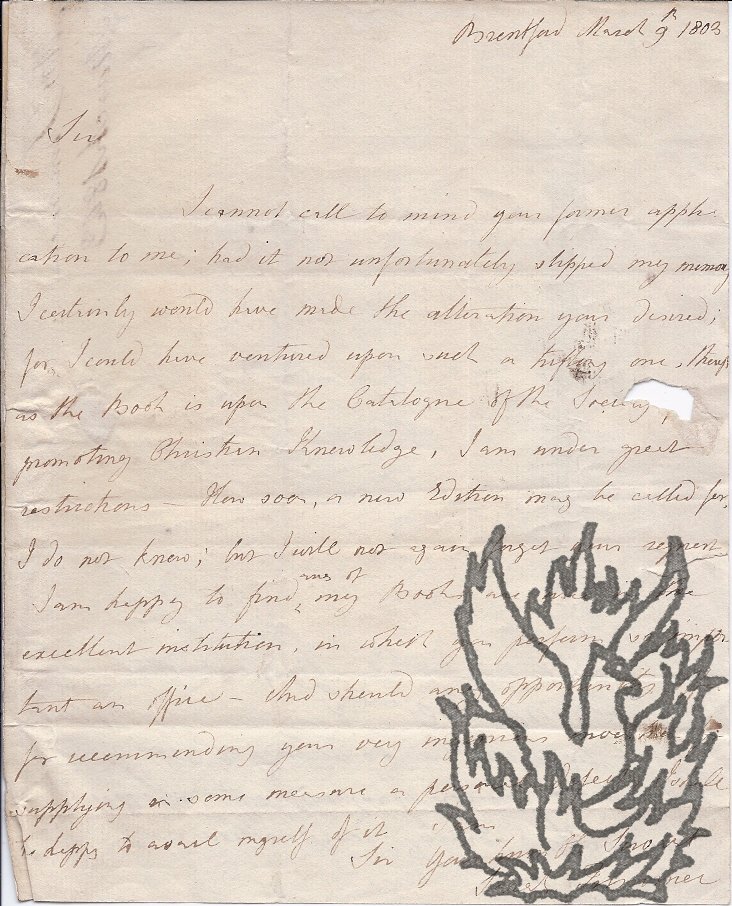 Brentford March 9th 1803
Sir
I cannot call to mind your former appli
cation to me; had it not unfortunately slipped my memory
I certainly would have made the alteration you desired;
for I could have ventured upon such a trifling one, though
as the Book is upon the Catalogue of the Society
promoting Christian Knowledge, I am under great
restrictions – How soon, a new Edition may be called for,
I do not know; but I will not again forget your request
I am happy to find any of my Books are
excellent institution, in which you perform so impor
tant an office – And should any opportunity
for recommending your very ingenious
supplying in some measure a personal defect, I
be happy to avail myself of it
Sir Your
Trimmer